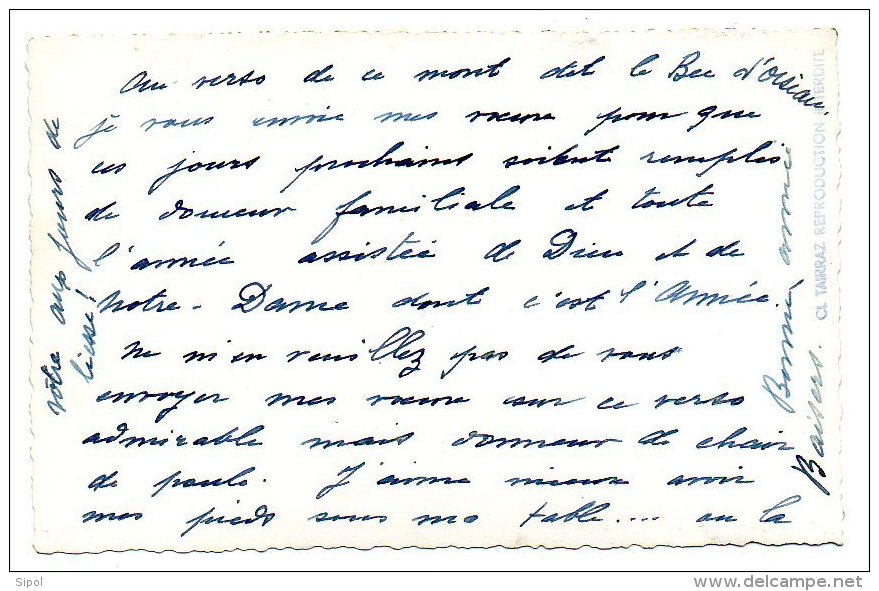 Au verso de ce mont dit le Bec d'Oiseau,
je vous envoie mes vœux pour que
ces jours prochains soient remplis
de douceur familiale et toute
l'année assistée de Dieu et de
Notre-Dame dont c'est l'Année.
Ne m'en veuillez pas de vous
envoyer mes vœux sur ce verso
admirable mais donneur de chair
de poule. J'aime mieux avoir
mes pieds sous ma table.... ou la
vôtre aux jours de
liesse!
Bonne année
Baisers.
Cl. TAIRRAZ REPRODUCTION INTERDITE
Sipol
http://www.delcampe.net